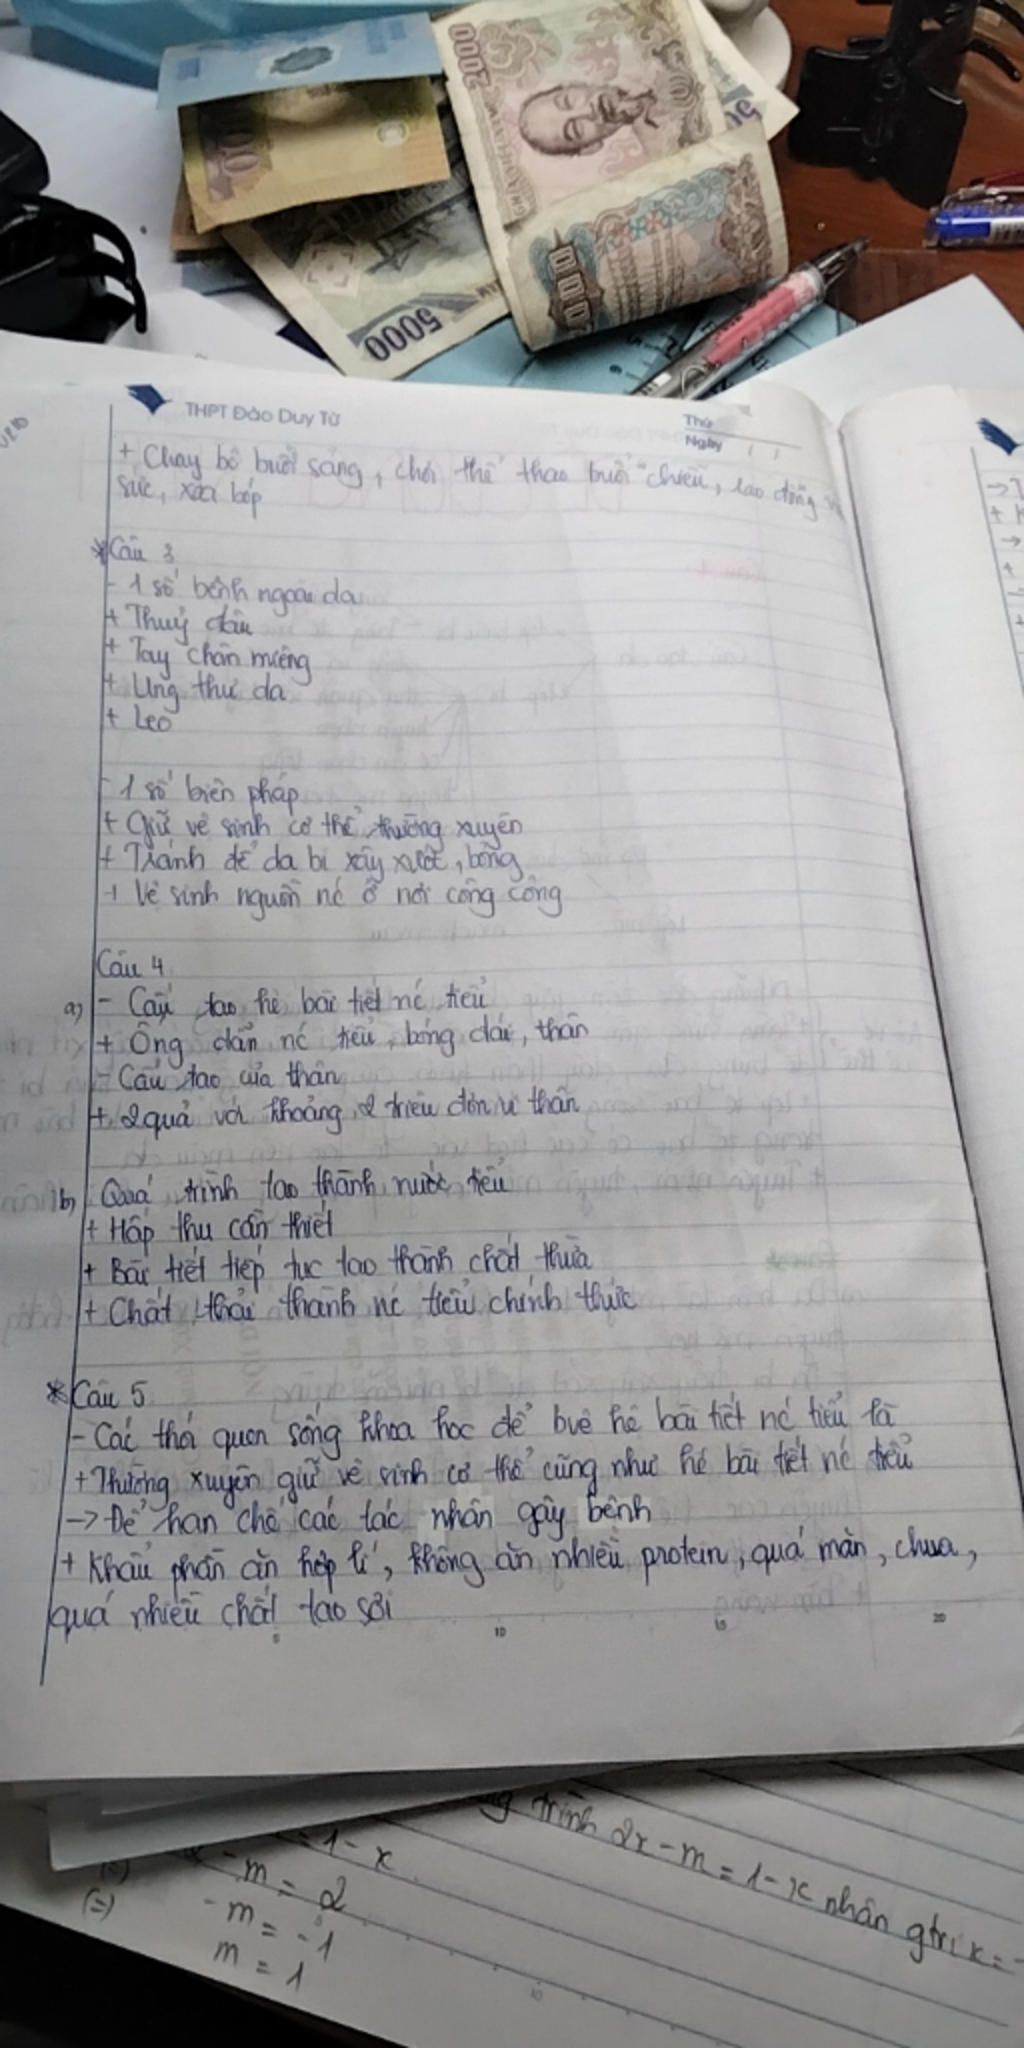 2000
5000
THPT Đào Duy Từ
Thứ
Ngày
+ Chạy bộ buổi sáng, chơi thể thao buổi chiều, lao động
sức, xoa bóp
* Câu 3
- 1 số bệnh ngoài da
+ Thuỷ đậu
+ Tay chân miệng
+ Ung thư da
+ Leo
- 1 số biện pháp
+ Giữ vệ sinh cơ thể thường xuyên
+ Tránh để da bị xây xước, bỏng
+ Vệ sinh nguồn nc ở nơi công cộng
Câu 4
a) - Cấu tạo hệ bài tiết nc tiểu
+ Ống dẫn nc tiểu, bóng đái, thận
- Cấu tạo của thận
+ 2 quả với khoảng 2 triệu đơn vị thận
b) - Quá trình tạo thành nước tiểu
+ Hấp thu cần thiết
+ Bài tiết tiếp tục tạo thành chất thừa
+ Chất thải thành nc tiểu chính thức
* Câu 5
- Các thói quen sống khoa học để bvệ hệ bài tiết nc tiểu là
+ Thường xuyên giữ vệ sinh cơ thể cũng như hệ bài tiết nc tiểu
-> Để hạn chế các tác nhân gây bệnh
+ Khẩu phần ăn hợp lí, không ăn nhiều protein, quá mặn, chua,
quá nhiều chất tạo sỏi
5 10 15 20
trình 2x - m = 1 - x nhận gtrị x =
= 1 - x
- m = 2
(=) - m = -1
(=) m = 1
10